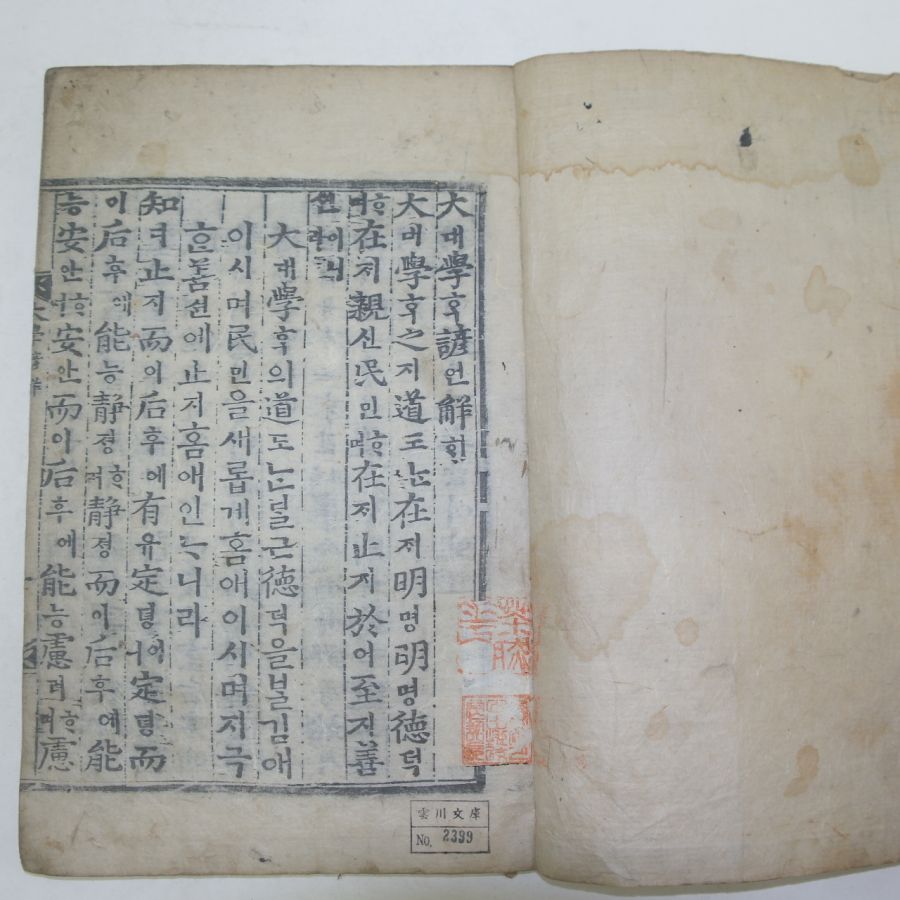 大대學ᄒᆞᆨ諺언解ᄒᆡ
大대學ᄒᆞᆨ之지道도ᄂᆞᆫ在ᄌᆡ明명明명德덕
ᄒᆞ며在ᄌᆡ親신民민ᄒᆞ며在ᄌᆡ止지於어至지善
션이니라
大대學ᄒᆞᆨ의道도ᄂᆞᆫᄇᆞᆯ근德덕을ᄇᆞᆯ김애
이시며民민을새롭게홈애이시며지극
ᄒᆞᆫ善션에止지홈애인ᄂᆞ니라
知디止지而이后후에有유定뎡이니定뎡而
이后후에能능靜졍ᄒᆞ며靜졍而이后후에能
능安안ᄒᆞ며安안而이后후에能능慮려ᄒᆞ며慮
雲川文庫
No. 2399